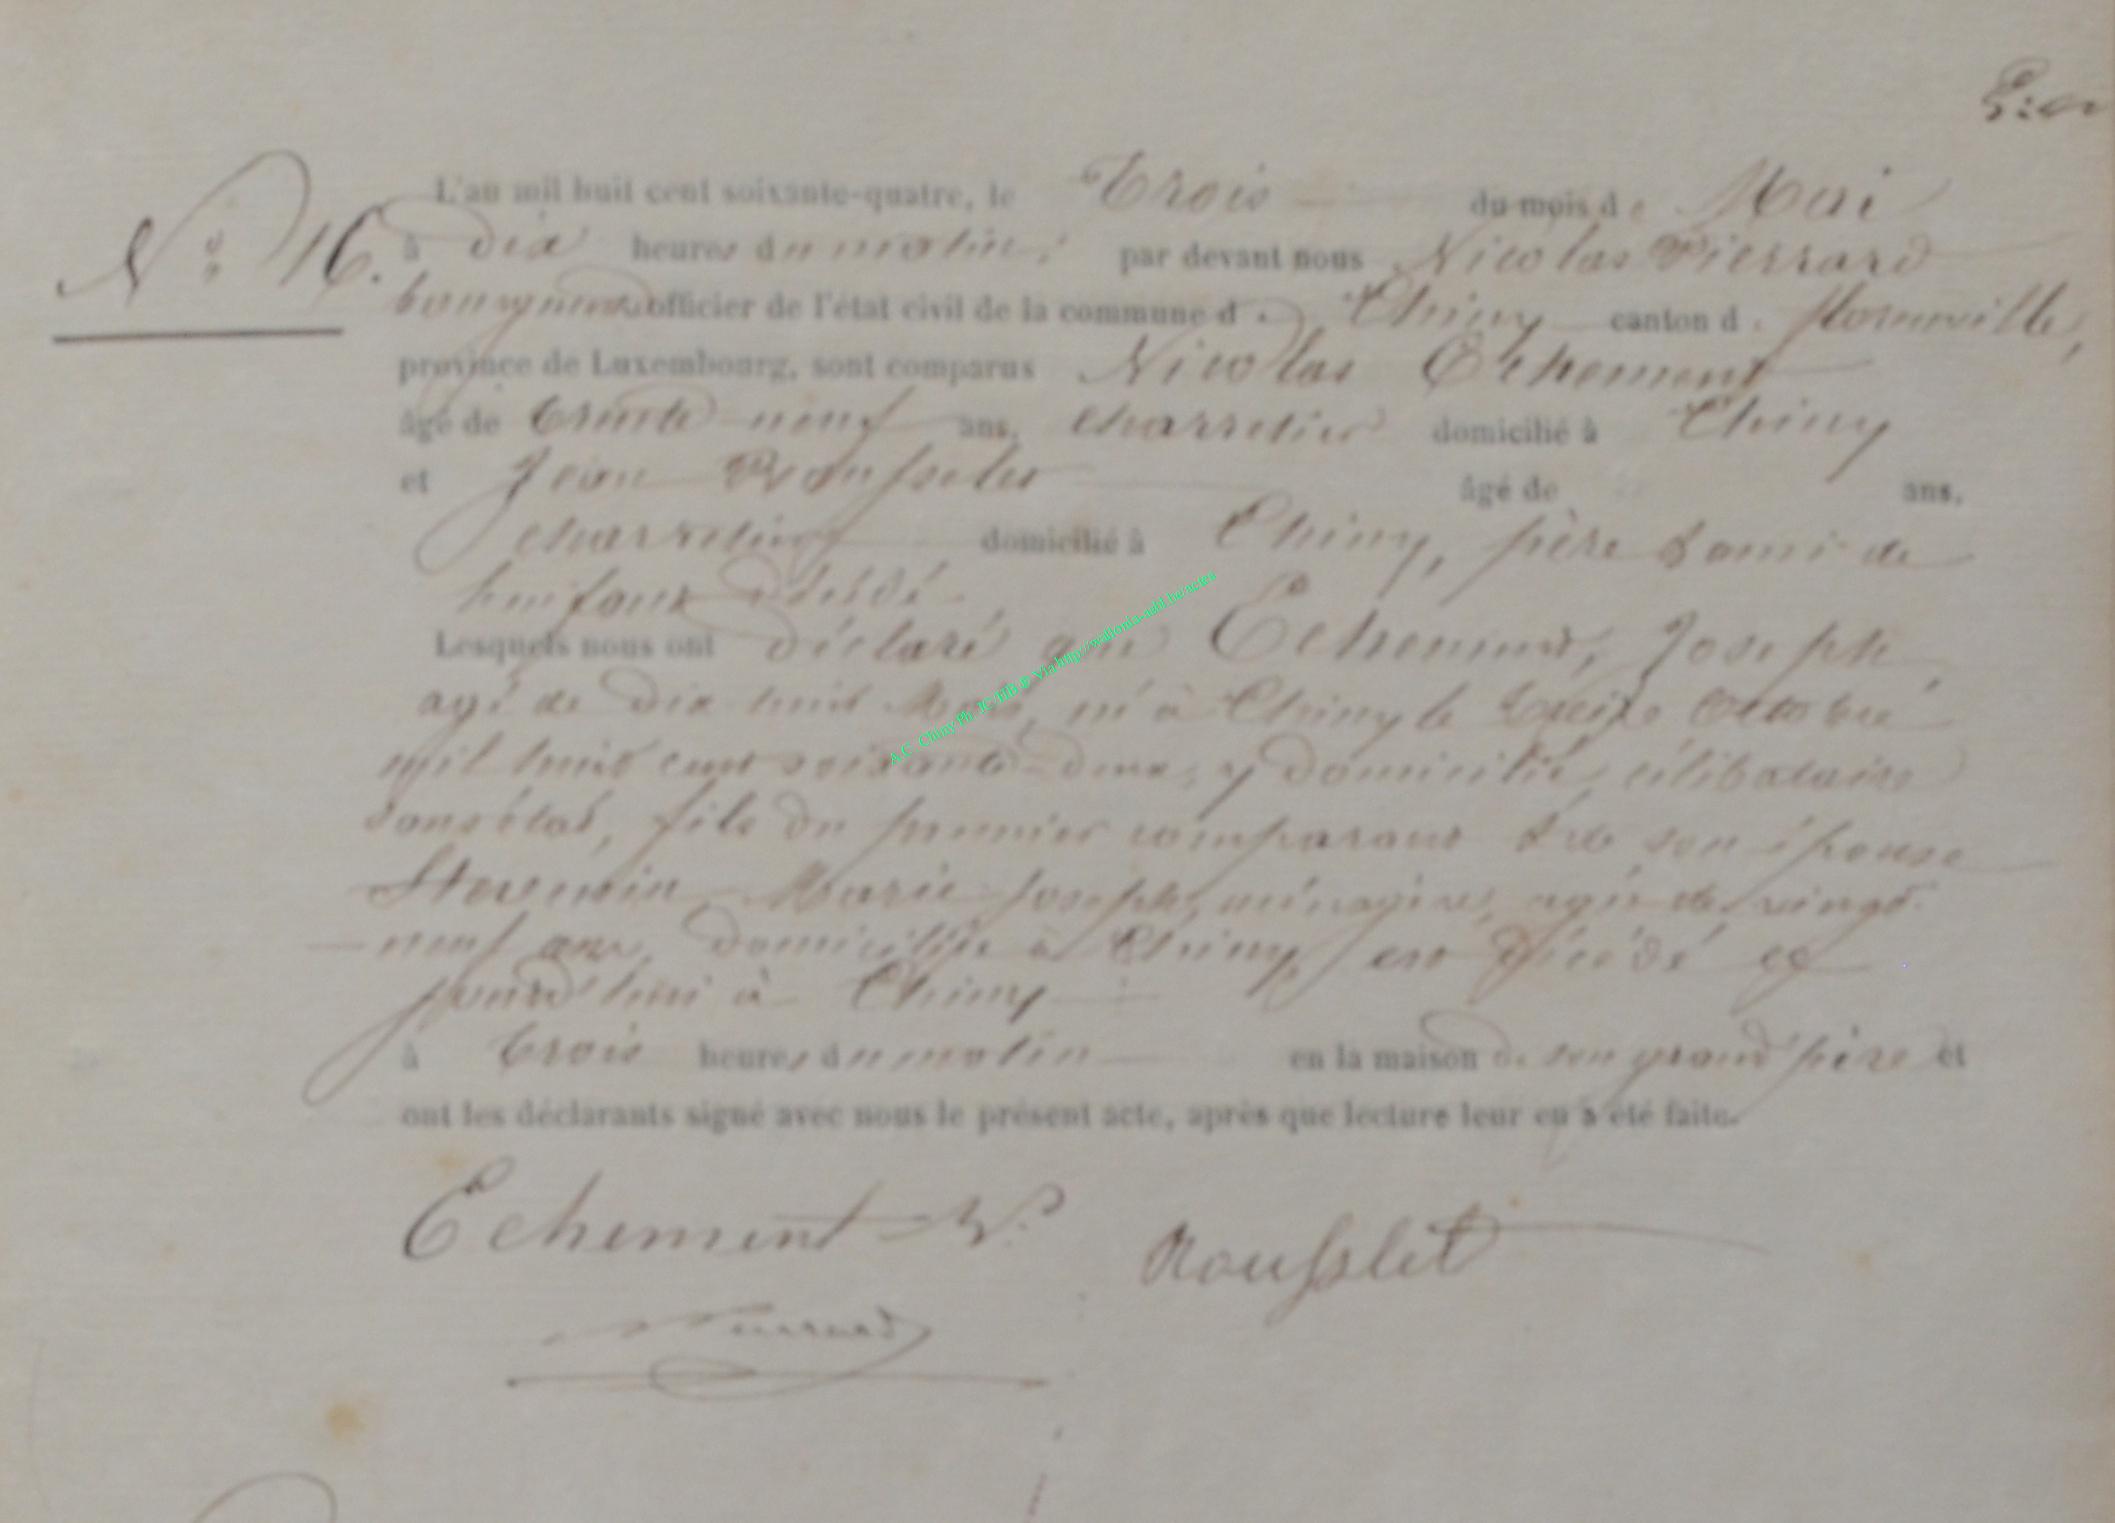 N° 16.
L'an mil huit cent soixante-quatre, le Trois du mois de Mai
à dix heures du matin, par devant nous Nicolas Pierrard
bourgmestre officier de l'état civil de la commune de Chiny canton de Florenville,
province de Luxembourg, sont comparus Nicolas Echement
âgé de trente neuf ans, charretier domicilié à Chiny
et Jean Rousselet âgé de ans,
charretier domicilié à Chiny, père & ami de
l'enfant décédé
Lesquels nous ont déclaré que Echement, Joseph,
agé de dix huit Mois, né à Chiny le octobre
mil huit cent soixante-deux, y domicilié, célibataire
sans état, fils du premier comparant & de son épouse
Marie Joseph, ménagère, agée de vingt
-neuf ans, domiciliée à Chiny est décédé
jourd'hui à Chiny
à trois heures du matin en la maison de son grand père et
ont les déclarants signé avec nous le présent acte, après que lecture leur en a été faite.
Echement N. Rousslet
Pierrard
A.C. Chiny Ph. JC-HB © Via http://wallonia-asbl.be/actes